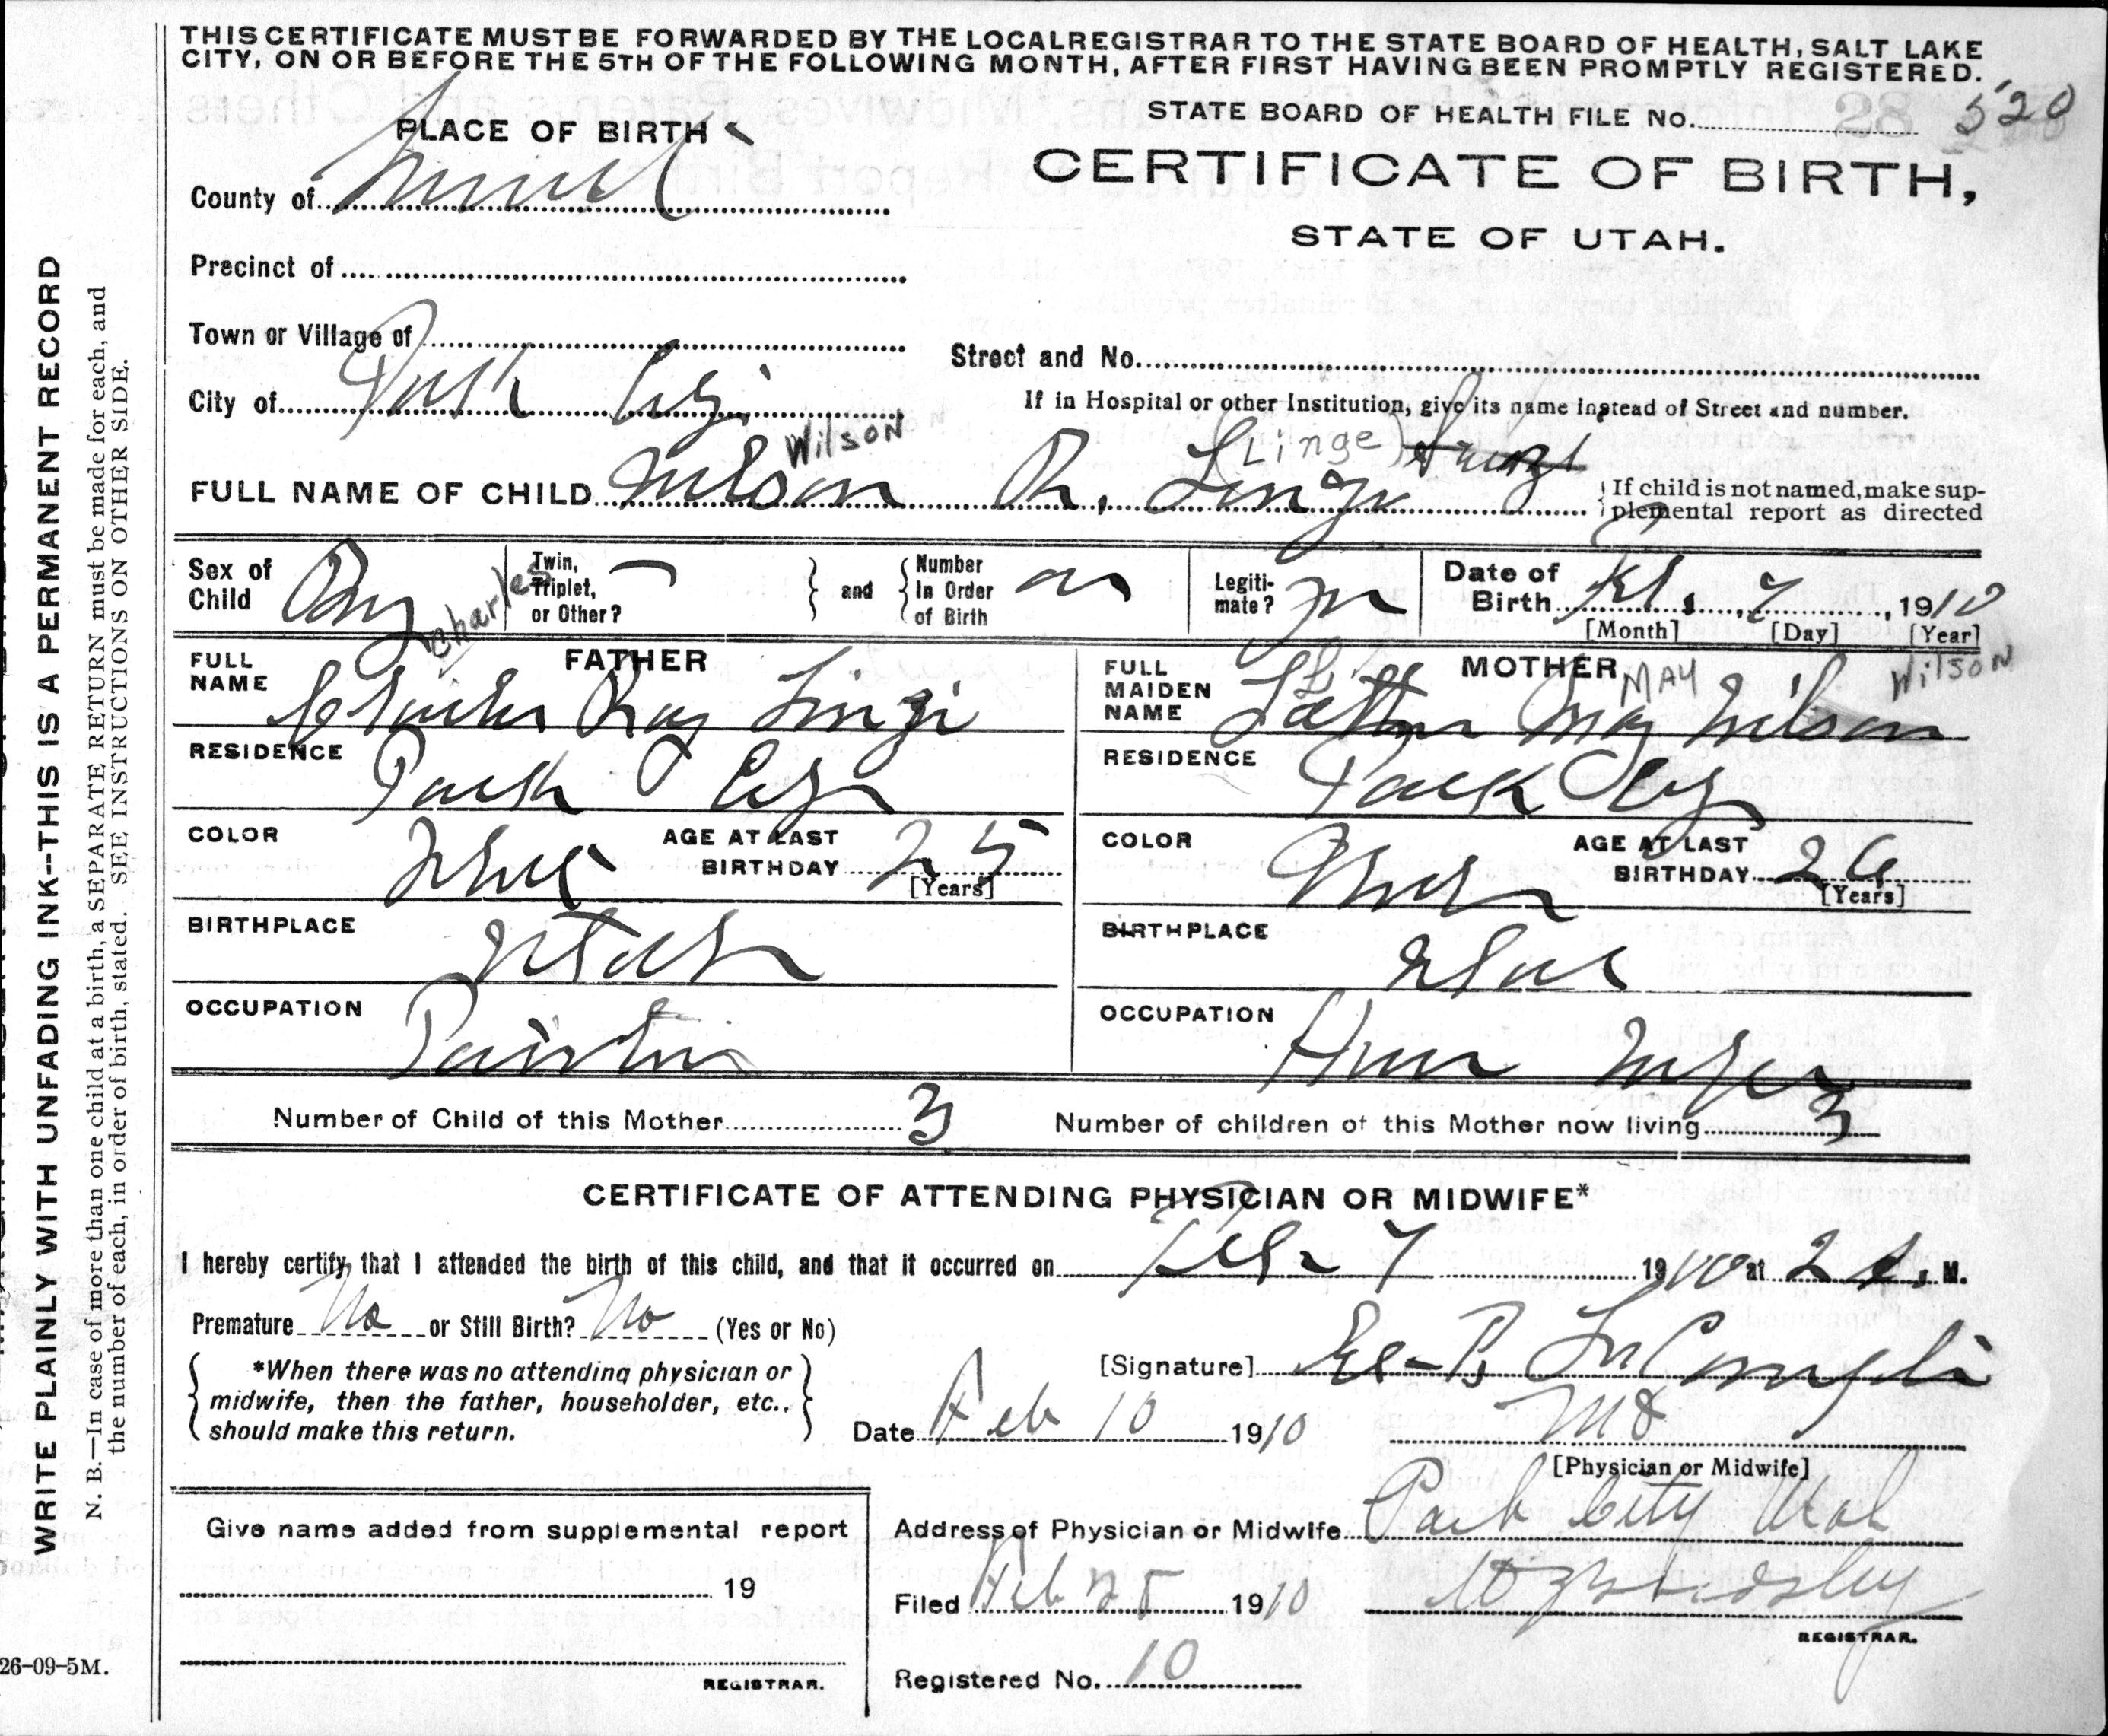 THIS CERTIFICATE MUST BE FORWARDED BY THE LOCAL REGISTRAR TO THE STATE BOARD OF HEALTH, SALT LAKE
CITY, ON OR BEFORE THE 5TH OF THE FOLLOWING MONTH, AFTER FIRST HAVING BEEN PROMPTLY REGISTERED.
STATE BOARD OF HEALTH FILE No. 520
PLACE OF BIRTH
CERTIFICATE OF BIRTH,
STATE OF UTAH.
County of Summit
Precinct of
Town or Village of
Street and No.
City of Park City
If in Hospital or other Institution, give its name instead of Street and number.
Wilson (Linge)
FULL NAME OF CHILD Wilson R. Linge
If child is not named, make sup-
plemental report as directed
Sex of Child Boy
Twin, Triplet, or Other? —
and Number In Order of Birth
Legiti-mate?
Date of Birth Feb. 7, 1910
[Month] [Day] [Year]
Charles
FATHER
FULL NAME Charles Ray Linge
MOTHER
MAY Wilson
FULL MAIDEN NAME May Wilson
RESIDENCE Park City
RESIDENCE Park City
COLOR White AGE AT LAST BIRTHDAY 25
[Years]
COLOR White AGE AT LAST BIRTHDAY 26
[Years]
BIRTHPLACE Utah
BIRTHPLACE Utah
OCCUPATION Painter
OCCUPATION House Wife
Number of Child of this Mother 3
Number of children of this Mother now living 3
CERTIFICATE OF ATTENDING PHYSICIAN OR MIDWIFE*
I hereby certify, that I attended the birth of this child, and that it occurred on Feb 7 1910 at 2 A. M.
Premature No or Still Birth? No (Yes or No)
*When there was no attending physician or
midwife, then the father, householder, etc.,
should make this return.
[Signature] E. P. LeCompte
MD
[Physician or Midwife]
Date Feb 10 1910
Address of Physician or Midwife Park City Utah
Filed Feb 25 1910
REGISTRAR.
Registered No. 10
Give name added from supplemental report
19
REGISTRAR.
WRITE PLAINLY WITH UNFADING INK--THIS IS A PERMANENT RECORD
N. B.—In case of more than one child at a birth, a SEPARATE RETURN must be made for each, and
the number of each, in order of birth, stated. SEE INSTRUCTIONS ON OTHER SIDE.
26-09-5M.